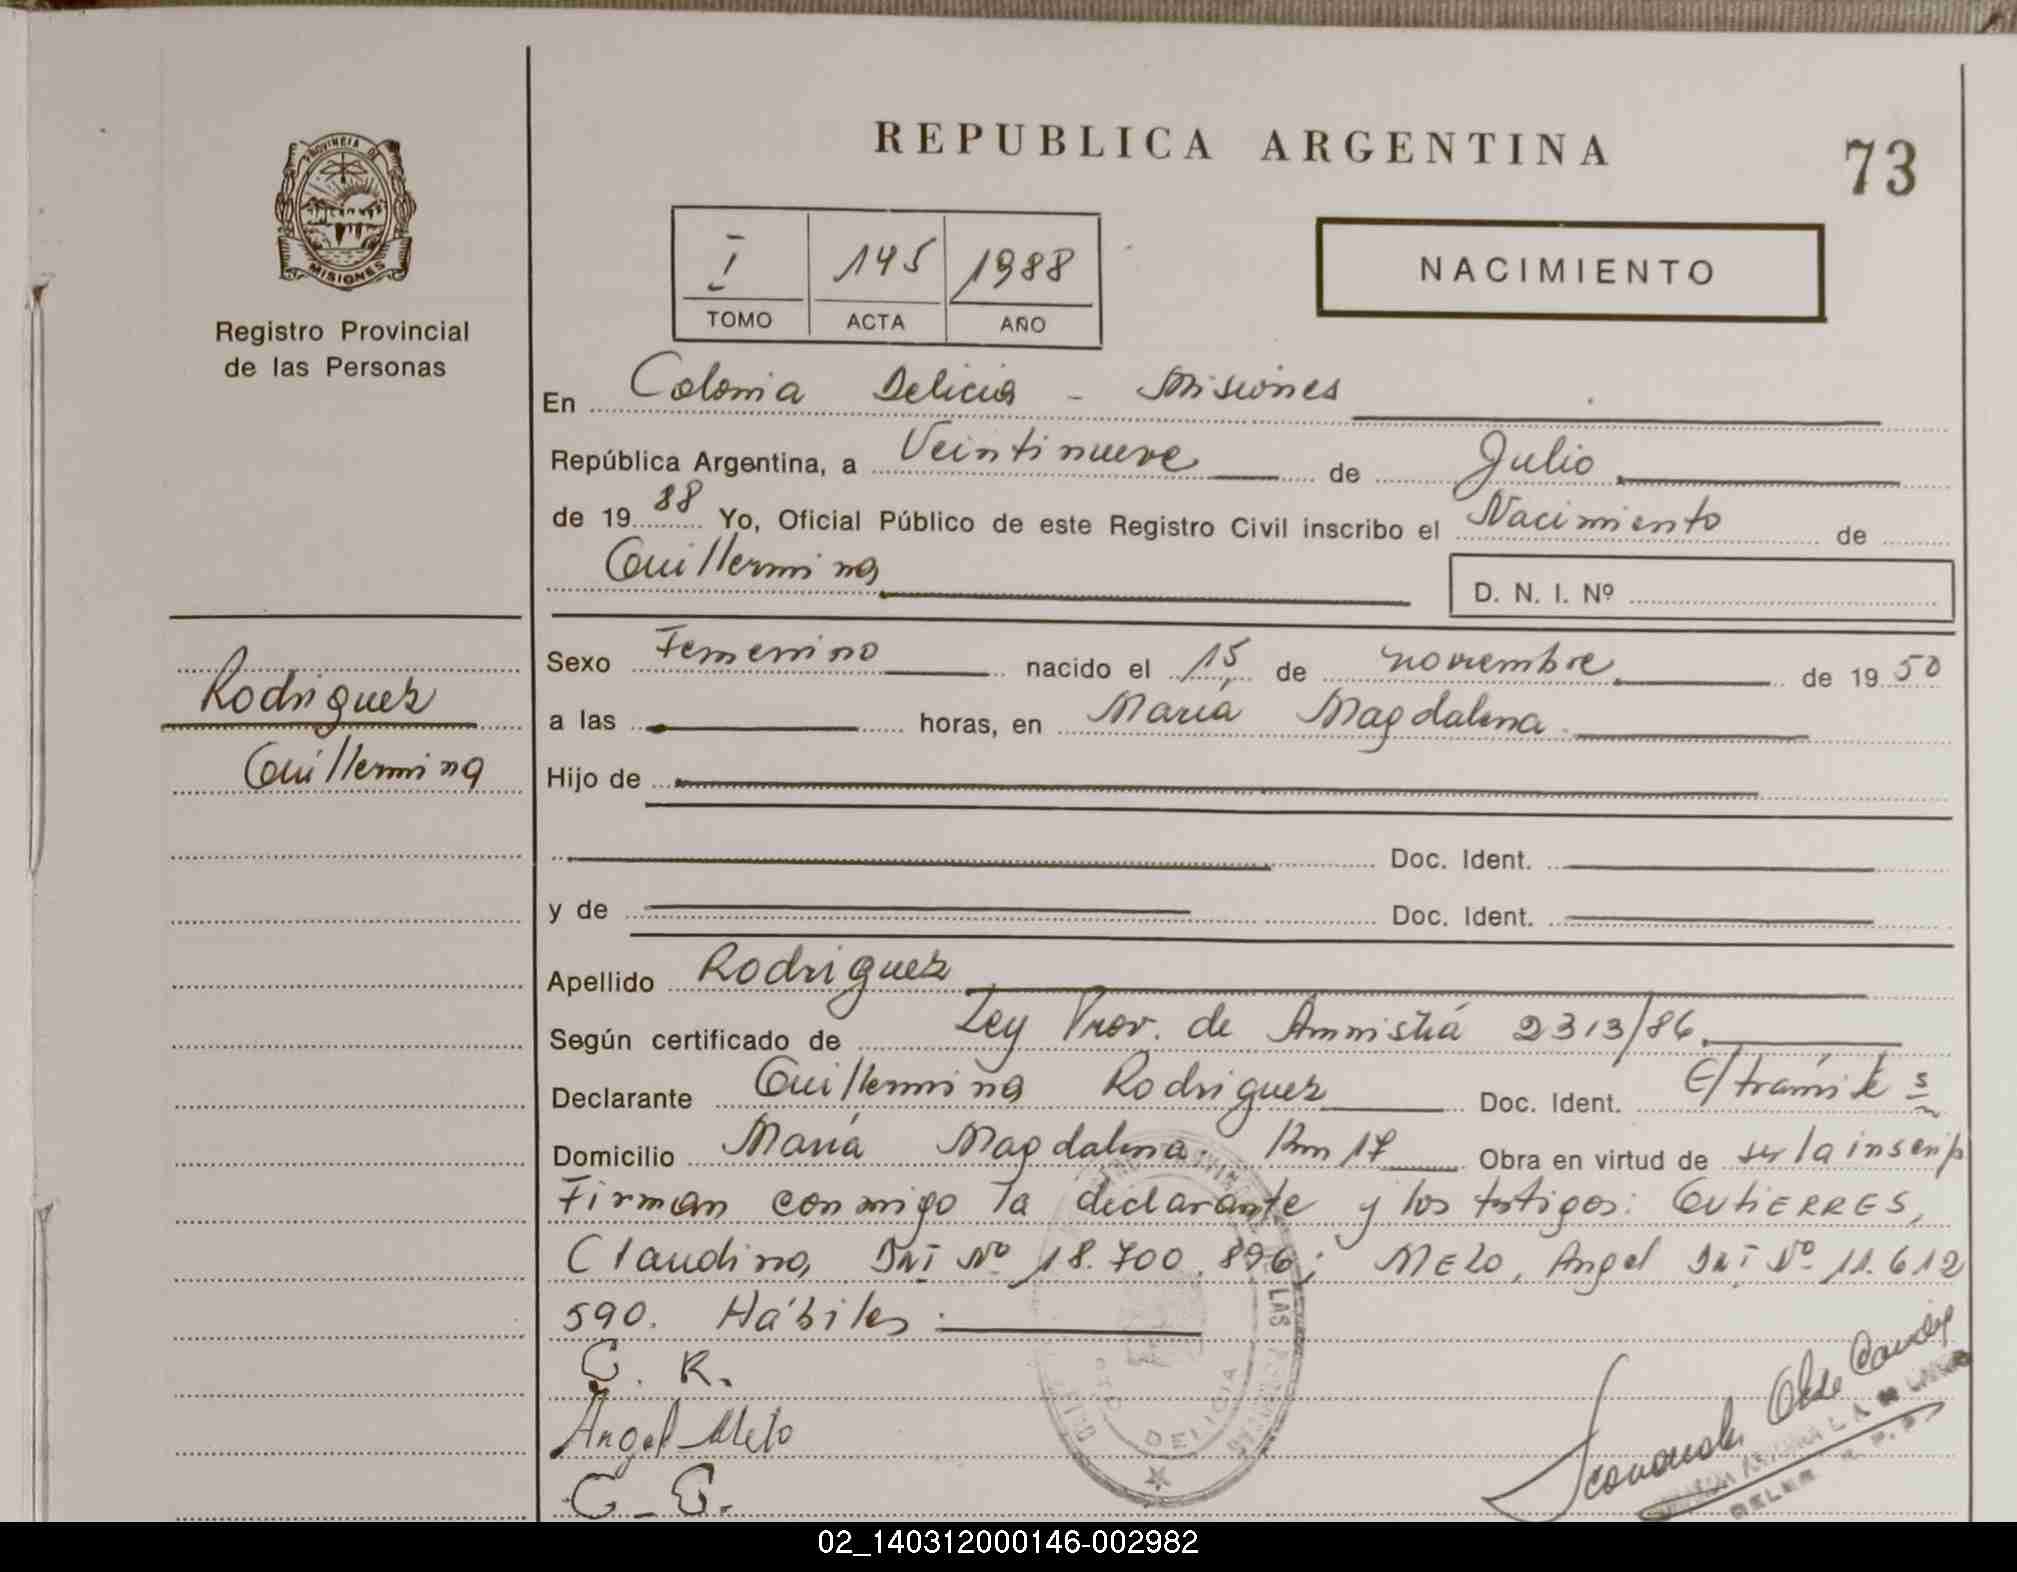 REPUBLICA ARGENTINA
73
PROVINCIA DE
MISIONES
Registro Provincial
de las Personas
I 145 1988
TOMO ACTA AÑO
NACIMIENTO
En Colonia Delicia - Misiones
República Argentina, a Veintinueve de Julio
de 19 88 Yo, Oficial Público de este Registro Civil inscribo el Nacimiento de
Guillermina
D. N. I. Nº
Rodriguez
Guillermina
Sexo Femenino nacido el 15 de noviembre de 19 50
a las horas, en María Magdalena
Hijo de
Doc. Ident.
y de Doc. Ident.
Apellido Rodriguez
Según certificado de Ley Prov. de Amnistiá 2313/86.
Declarante Guillermina Rodriguez Doc. Ident. E/trámite
Domicilio María Magdalena Km 17 Obra en virtud de ser la inscrip
Firman conmigo la declarante y los testigos: GUTIERRES,
Claudino, DNI Nº 18.700.896; MELO, Angel DNI Nº 11.612
590. Hábiles.
G. R.
Angel Melo
C. G.
LAS
DELICIA
02_140312000146-002982